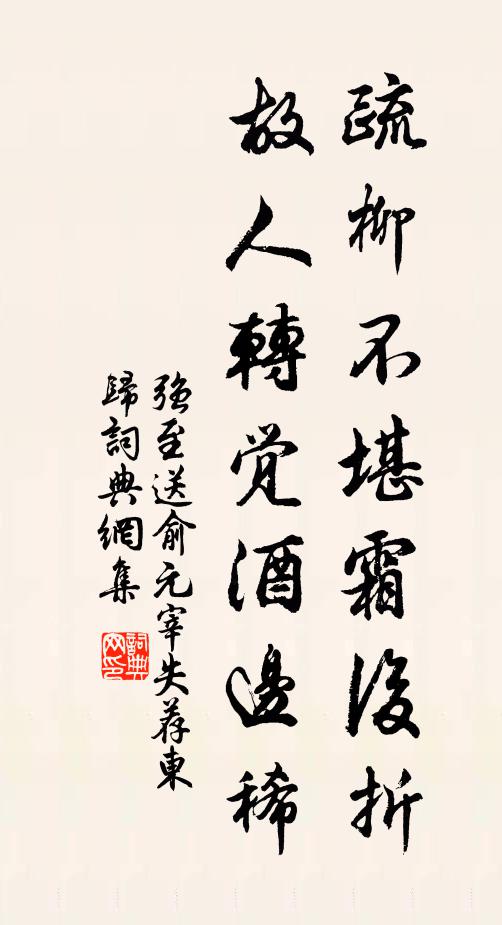 疏柳不堪霜後折
故人轉覺酒邊稀
強至送俞元宰失荐東
歸詞典網集
詞典
网印